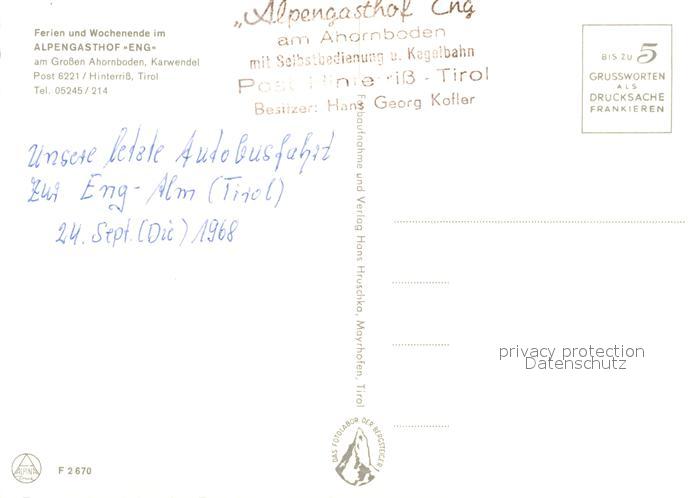 Ferien und Wochenende im
ALPENGASTHOF »ENG«
am Großen Ahornboden, Karwendel
Post 6221 / Hinterriß, Tirol
Tel. 05245 / 214
„Alpengasthof Eng
am Ahornboden
mit Selbstbedienung u. Kegelbahn
Post Hinterriß - Tirol
Besitzer: Hans Georg Kofler
BIS ZU 5
GRUSSWORTEN
ALS
DRUCKSACHE
FRANKIEREN
Unsere letzte Autobusfahrt
zur Eng-Alm (Tirol)
24. Sept. (Die) 1968
Farbaufnahme und Verlag Hans Hruschka, Mayrhofen, Tirol
privacy protection
Datenschutz
DAS FOTOLABOR DER BERGSTEIGER
ALPINA
F 2670